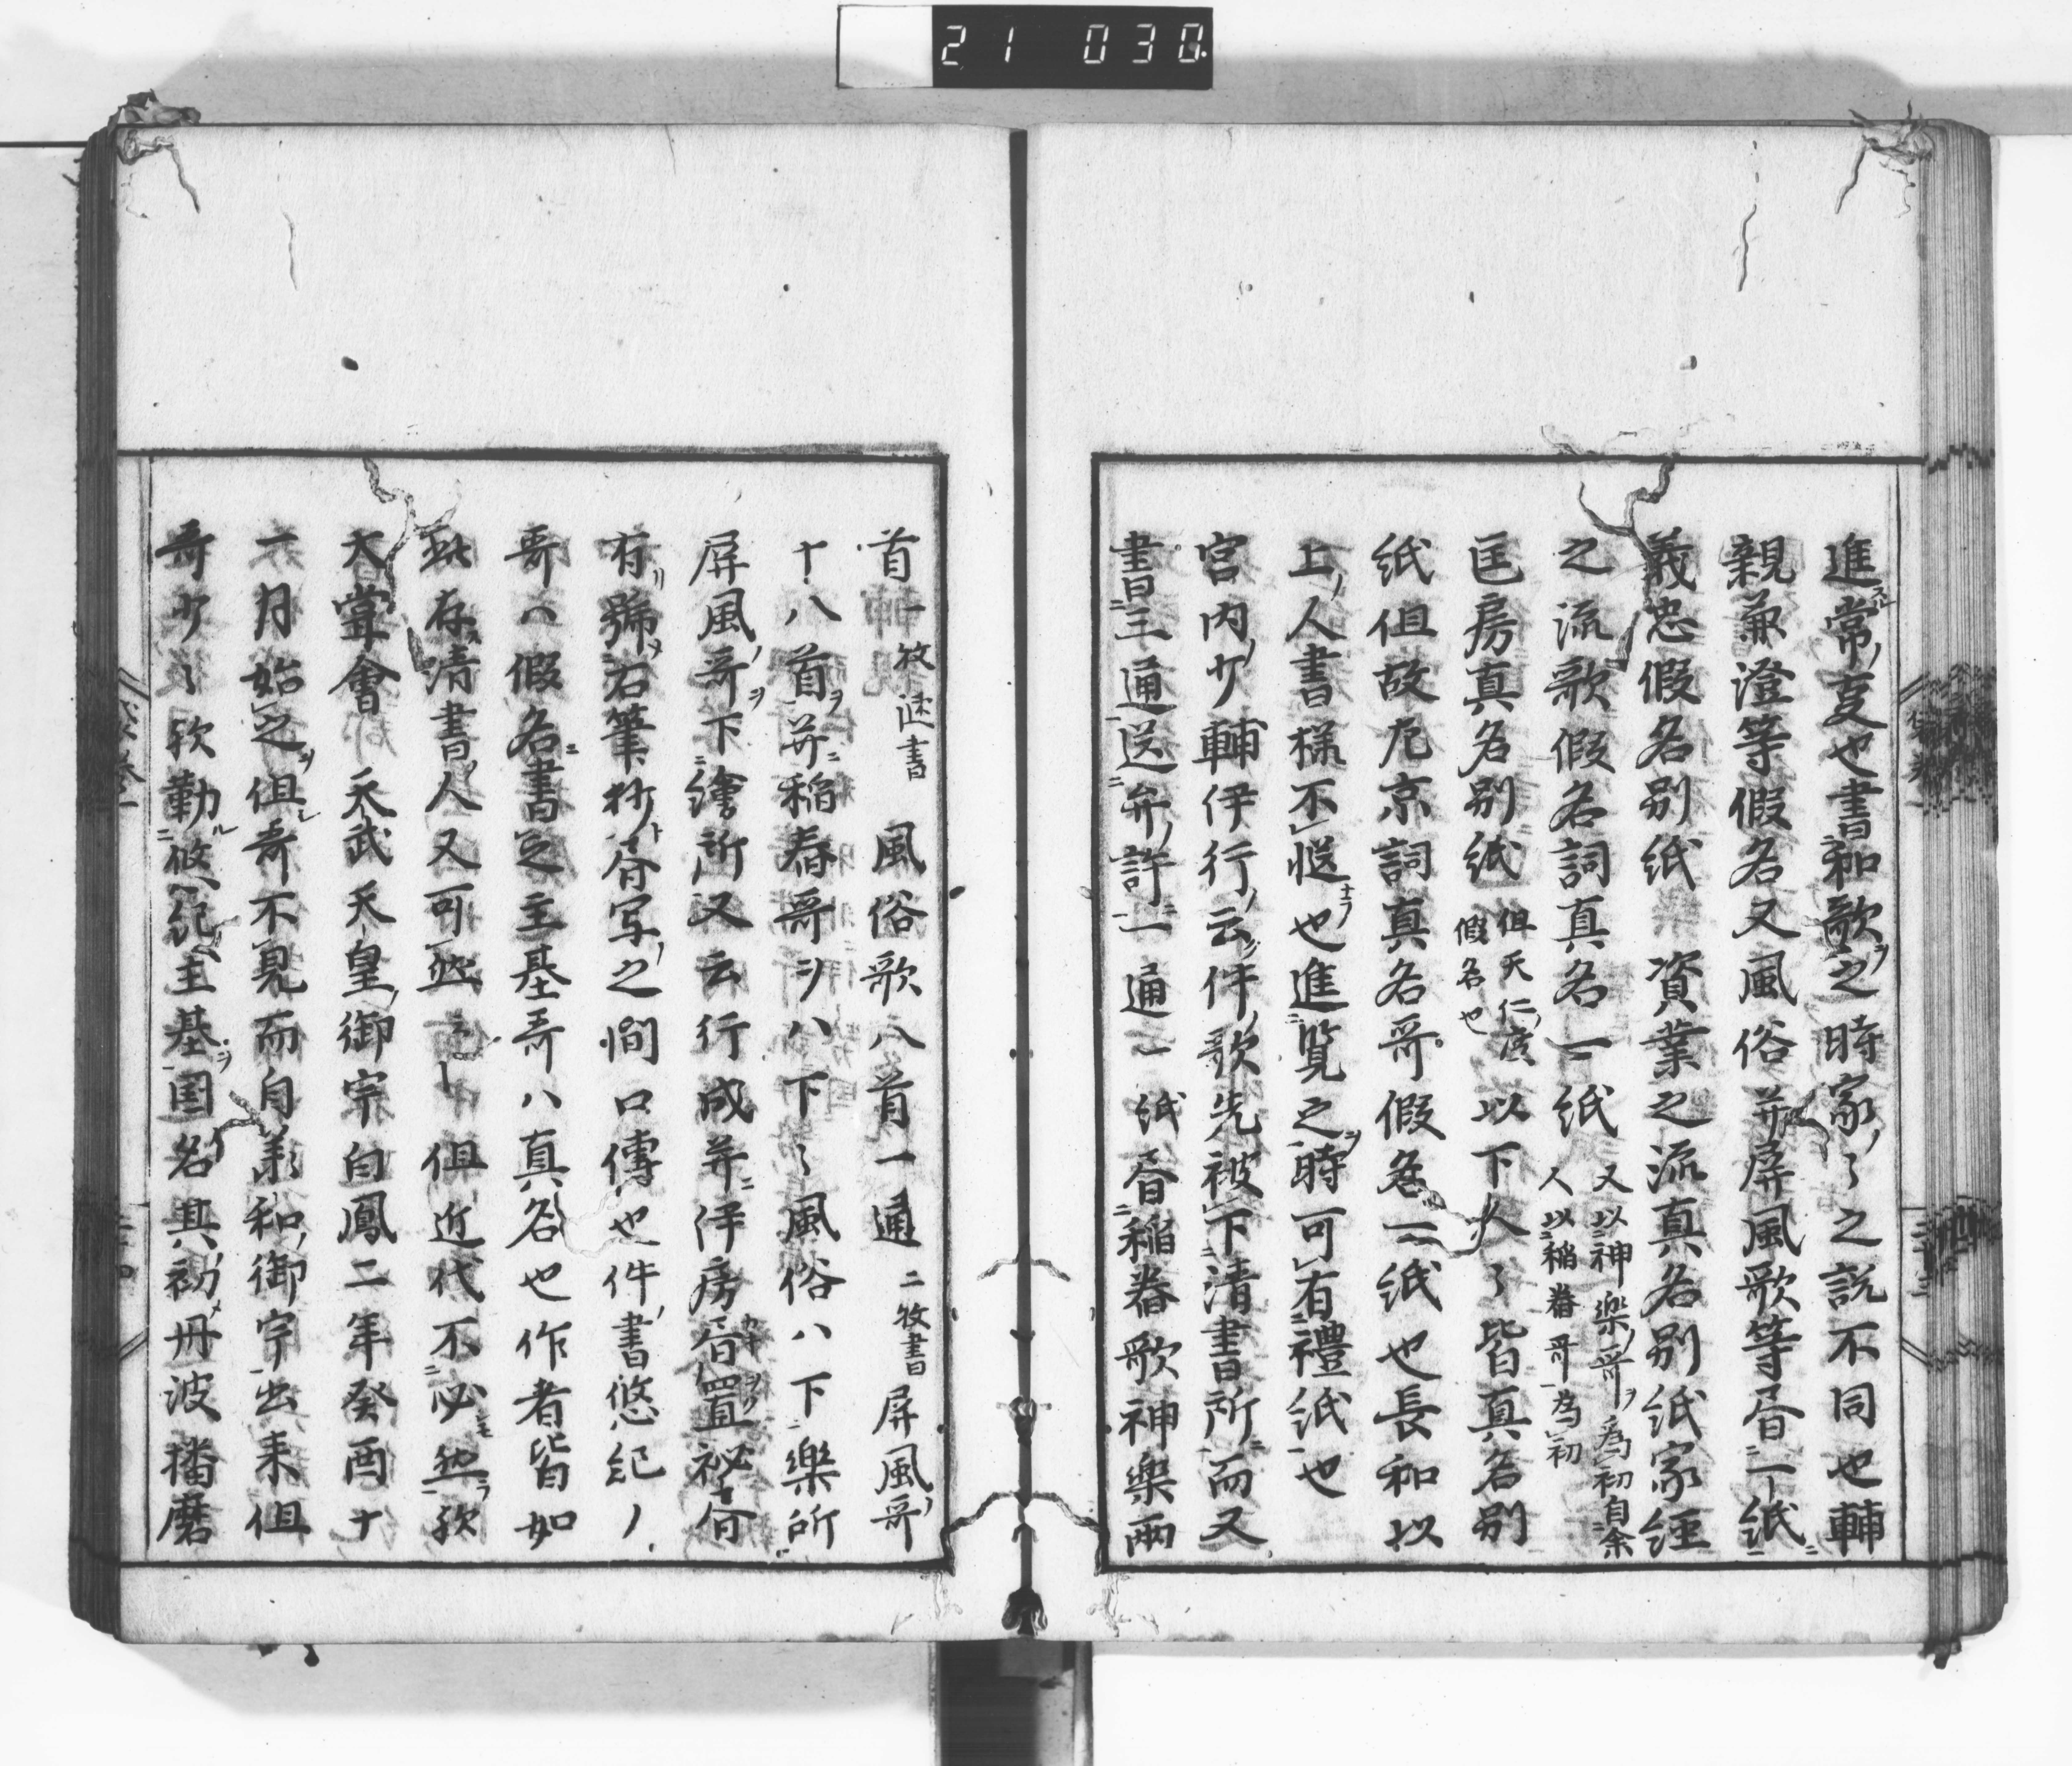 21 030
進常叓也書和歌之時家〻之説不同也輔
親兼澄等假名又風俗并屏風歌等昏一紙
義忠假名別紙 資業之流真名別紙家経
之流歌假名詞真名一紙 又以神樂哥為初自余
人以稲舂哥為初
匡房真名別紙 但天仁度
假名也 以下人〻皆真名別
紙但故左京詞真名哥假名一紙也長和以
上人書様不慥也進覧之時可有禮紙也
宮内少輔伊行云件歌先被下清書所而又
書三通送弁許一通一紙昏稲舂歌神樂兩
首一枚 書 風俗歌八首一通 二枚書 屏風哥
十八首并稲舂哥ヲハ下〻風俗ハ下樂所
屏風哥下繪所又云行成并伊房昏置祕昏
有號右筆抄昏写之間口傳也件書悠紀ノ
哥ハ假名書之主基哥ハ真名也作者皆如
此存清書人又可然云〻但近代不必然歟
大甞會 天武天皇御宇白鳳二年癸酉十
一月始之但哥不見而自兼和御宇出来但
哥少〻歟勤悠紀主基国名其初丹波播磨